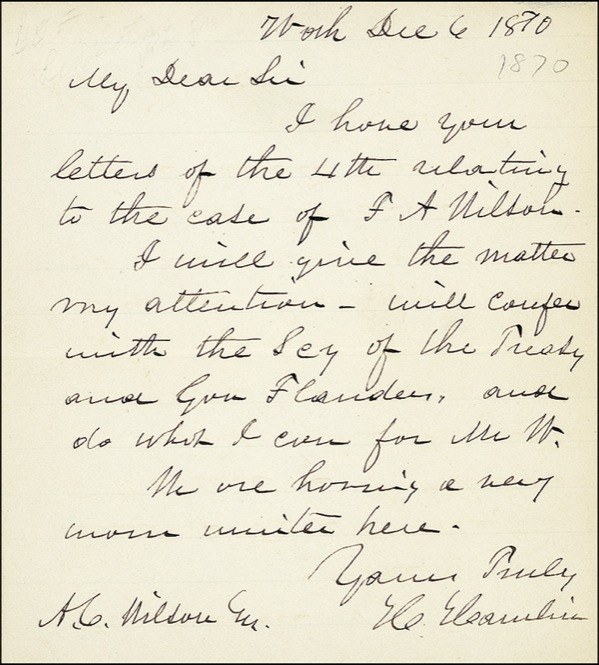 Wash Dec 6 1870
1870
My Dear Sir
I have your
letters of the 4th relating
to the case of F A Wilson.
I will give the matter
my attention - will confer
with the Scy of the Treasy
and Gov Flanders, and
do what I can for Mr W.
We are having a very
warm winter here.
Yours Truly
H. Hamlin
A. C. Wilson Esq.